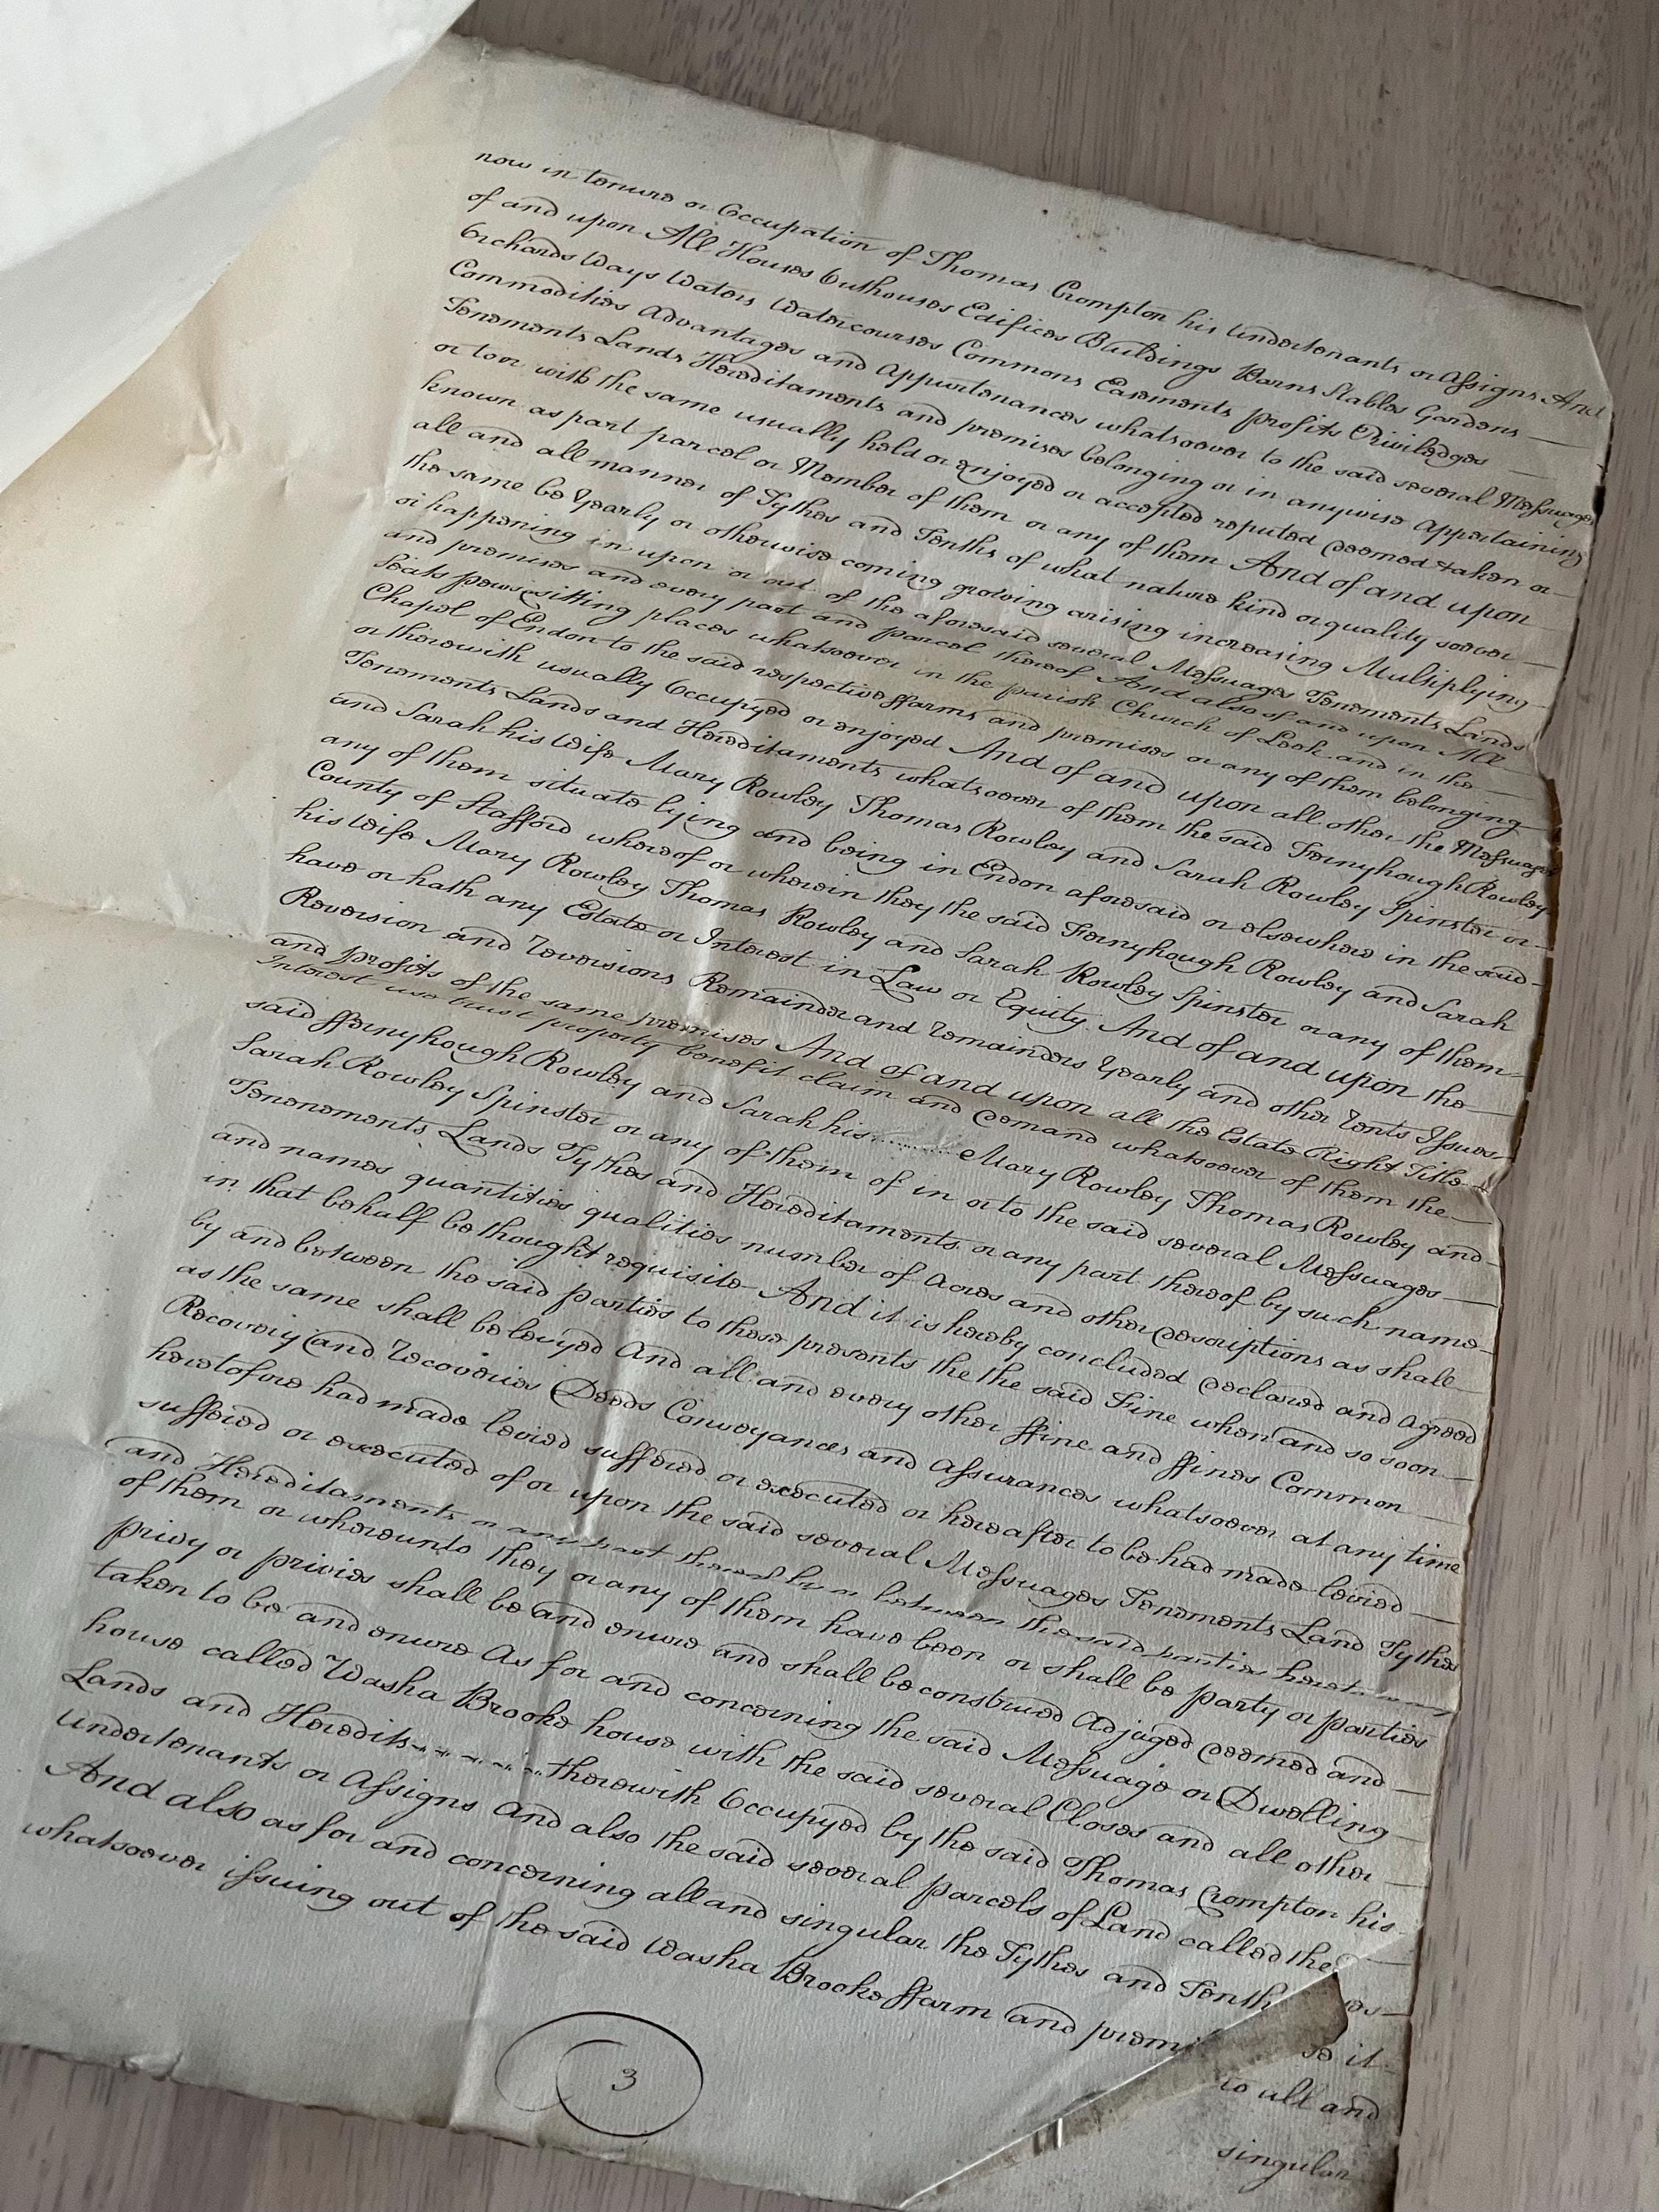 now in tenure or Occupation of Thomas Crompton his Undertenants or Assigns And
of and upon All Houses Outhouses Edifices Buildings Barns Stables Gardens
Orchards Ways Waters Watercourses Commons Easments profits Priviledges
Commodities Advantages and Appurtenances whatsoever to the said several Messuages
Tenements Lands Hereditaments and premises belonging or in anywise Appertaining
or to or with the same usually held or enjoyed or accepted reputed deemed taken or
known as part parcel or Member of them or any of them And of and upon
all and all manner of Tythes and Tenths of what nature kind or quality soever
the same be Yearly or otherwise coming growing arising increasing Multiplying
or happening in upon or out of the aforesaid several Messuages Tenements Lands
and premises and every part and parcel thereof And also of and upon All
Seats pews sitting places whatsoever in the parish Church of Leek and in the
Chapel of Endon to the said respective ffarms and premises or any of them belonging
or therewith usually Occupyed or enjoyed And of and upon all other the Messuages
Tenements Lands and Hereditaments whatsoever of them the said Fernyhough Rowley
and Sarah his Wife Mary Rowley Thomas Rowley and Sarah Rowley Spinster or
any of them situate lying and being in Endon aforesaid or elsewhere in the said
County of Stafford whereof or wherein they the said Fernyhough Rowley and Sarah
his Wife Mary Rowley Thomas Rowley and Sarah Rowley Spinster or any of them
have or hath any Estate or Interest in Law or Equity And of and upon the
Reversion and Reversions Remainder and remainders Yearly and other rents Issues
and profits of the same premises And of and upon all the Estate Right Title
Interest use trust property benefit claim and demand whatsoever of them the
said ffernyhough Rowley and Sarah his Mary Rowley Thomas Rowley and
Sarah Rowley Spinster or any of them of in or to the said several Messuages
Tenenements Lands Tythes and Hereditaments or any part thereof by such name
and names quantities qualities number of Acres and other descriptions as shall
in that behalf be thought requisite And it is hereby concluded declared and Agreed
by and between the said parties to these presents the the said Fine when and so soon
as the same shall be levyed And all and every other ffine and ffines Common
Recoveriy and Recoveries Deeds Conveyances and Assurances whatsoever at any time
heretofore had made levied suffered or executed or hereafter to be had made levied
suffered or executed of or upon the said several Messuages Tenements Land Tythes
and Hereditaments or any part thereof by or between the said parties hereto
of them or whereunto they or any of them have been or shall be party or parties
privy or privies shall be and enure and shall be construed Adjuged deemed and
taken to be and enure As for and concerning the said Messuage or Dwelling
house called Washa Brooke house with the said several Closes and all other
Lands and Heredits therewith Occupyed by the said Thomas Crompton his
Undertenants or Assigns And also the said several parcels of Land called the
And also as for and concerning all and singular the Tythes and Tenth
whatsoever issuing out of the said Washa Brooke ffarm and premi
so it
to all and
singular
3